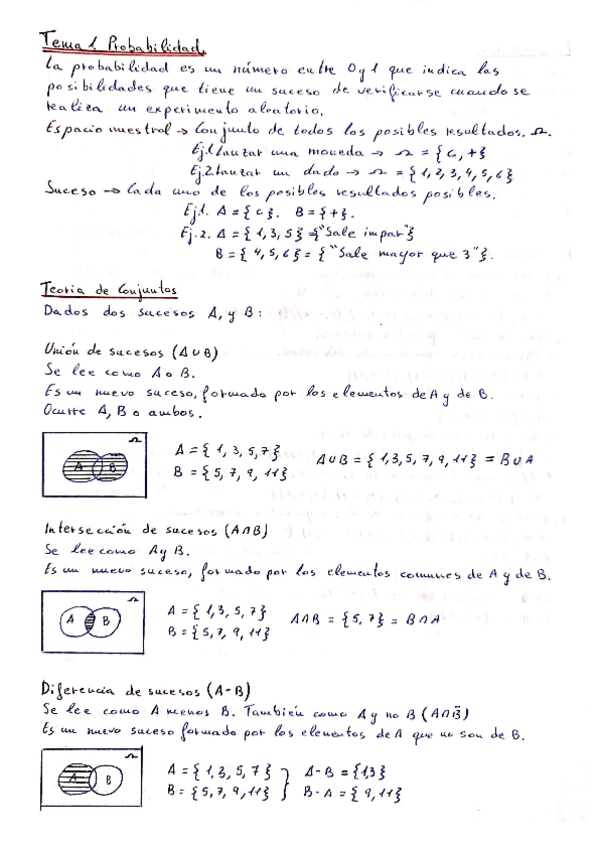 Tema 1. Probabilidad.
La probabilidad es un número entre 0 y 1 que indica las
posibilidades que tiene un suceso de verificarse cuando se
realiza un experimento aleatorio.
Espacio muestral → Conjunto de todos los posibles resultados. Ω.
Ej.1. Lanzar una moneda → Ω = {c, +}
Ej.2. Lanzar un dado → Ω = {1, 2, 3, 4, 5, 6}
Suceso → Cada uno de los posibles resultados posibles.
Ej.1. A = {c}. B = {+}.
Ej. 2. A = {1, 3, 5} = {"Sale impar"}
B = {4, 5, 6} = {"Sale mayor que 3"}.
Teoría de Conjuntos
Dados dos sucesos A, y B:
Unión de sucesos (A∪B)
Se lee como A o B.
Es un nuevo suceso, formado por los elementos de A y de B.
Ocurre A, B o ambos.
Ω
A B
A = {1, 3, 5, 7}
B = {5, 7, 9, 11}
A∪B = {1, 3, 5, 7, 9, 11} = B∪A
Intersección de sucesos (A∩B)
Se lee como A y B.
Es un nuevo suceso, formado por los elementos comunes de A y de B.
Ω
A B
A = {1, 3, 5, 7}
B = {5, 7, 9, 11}
A∩B = {5, 7} = B∩A
Diferencia de sucesos (A-B)
Se lee como A menos B. También como A y no B (A∩B̄)
Es un nuevo suceso formado por los elementos de A que no son de B.
Ω
A B
A = {1, 3, 5, 7} A-B = {1,3}
B = {5, 7, 9, 11} B-A = {9, 11}